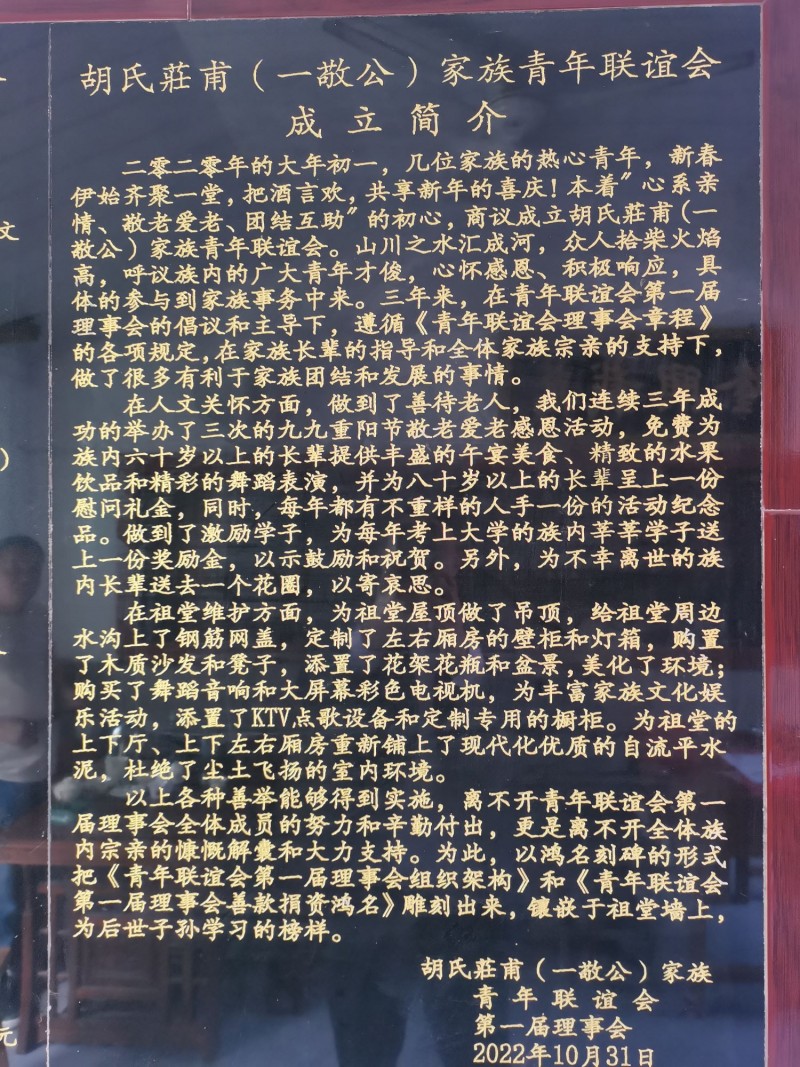 胡氏莊甫（一敬公）家族青年联谊会
成立简介
二零二零年的大年初一，几位家族的热心青年，新春
伊始齐聚一堂，把酒言欢，共享新年的喜庆！本着"心系亲
情、敬老爱老、团结互助"的初心，商议成立胡氏莊甫（一
敬公）家族青年联谊会。山川之水汇成河，众人拾柴火焰
高，呼议族内的广大青年才俊，心怀感恩、积极响应，具
体的参与到家族事务中来。三年来，在青年联谊会第一届
理事会的倡议和主导下，遵循《青年联谊会理事会章程》
的各项规定，在家族长辈的指导和全体家族宗亲的支持下，
做了很多有利于家族团结和发展的事情。
在人文关怀方面，做到了善待老人，我们连续三年成
功的举办了三次的九九重阳节敬老爱老感恩活动，免费为
族内六十岁以上的长辈提供丰盛的午宴美食、精致的水果
饮品和精彩的舞蹈表演，并为八十岁以上的长辈呈上一份
慰问礼金，同时，每年都有不重样的人手一份的活动纪念
品。做到了激励学子，为每年考上大学的族内莘莘学子送
上一份奖励金，以示鼓励和祝贺。另外，为不幸离世的族
内长辈送去一个花圈，以寄哀思。
在祖堂维护方面，为祖堂屋顶做了吊顶，给祖堂周边
水沟上了钢筋网盖，定制了左右厢房的壁柜和灯箱，购置
了木质沙发和凳子，添置了花架花瓶和盆景，美化了环境；
购买了舞蹈音响和大屏幕彩色电视机，为丰富家族文化娱
乐活动，添置了KTV点歌设备和定制专用的橱柜。为祖堂的
上下厅、上下左右厢房重新铺上了现代化优质的自流平水
泥，杜绝了尘土飞扬的室内环境。
以上各种善举能够得到实施，离不开青年联谊会第一
届理事会全体成员的努力和辛勤付出，更是离不开全体族
内宗亲的慷慨解囊和大力支持。为此，以鸿名刻碑的形式
把《青年联谊会第一届理事会组织架构》和《青年联谊会
第一届理事会善款捐资鸿名》雕刻出来，镶嵌于祖堂墙上，
为后世子孙学习的榜样。
胡氏莊甫（一敬公）家族
青年联谊会
第一届理事会
2022年10月31日
文
）
元